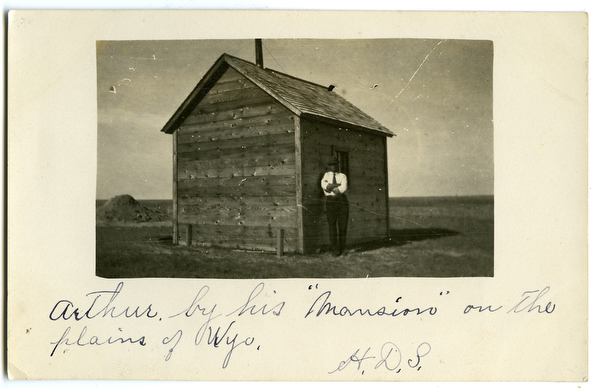 Arthur. by his "Mansion" on the
plains of Wyo.
H.D.S.